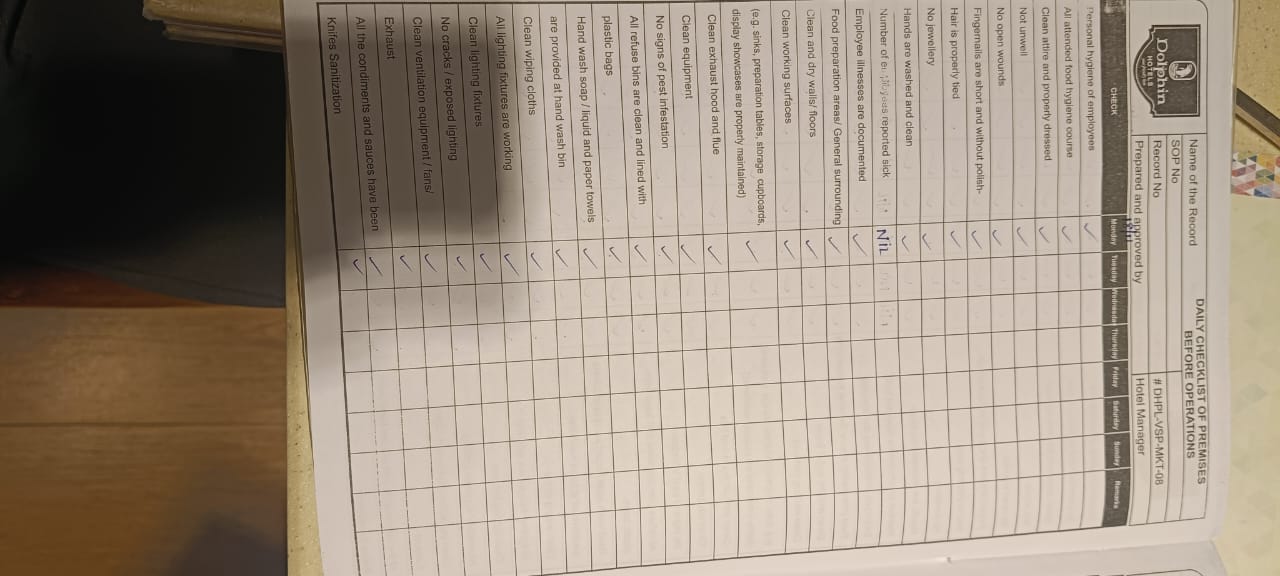 Dolphin
HOTELS
Name of the Record
DAILY CHECKLIST OF PREMISES
BEFORE OPERATIONS
SOP No
Record No
# DHPL-VSP-MKT-08
Prepared and approved by
Hotel Manager
CHECK Monday Tuesday Wednesday Thursday Friday Saturday Sunday Remarks
Personal hygiene of employees ✓
All attended food hygiene course ✓
Clean attire and properly dressed ✓
Not unwell ✓
No open wounds ✓
Fingernails are short and without polish- ✓
Hair is properly tied ✓
No jewellery ✓
Hands are washed and clean ✓
Number of employees reported sick NIL
Employee illnesses are documented ✓
Food preparation areas/ General surrounding ✓
Clean and dry walls/ floors ✓
Clean working surfaces ✓
(e.g. sinks, preparation tables, storage cupboards, ✓
display showcases are properly maintained)
Clean exhaust hood and flue ✓
Clean equipment ✓
No signs of pest infestation ✓
All refuse bins are clean and lined with ✓
plastic bags ✓
Hand wash soap / liquid and paper towels ✓
are provided at hand wash bin ✓
Clean wiping cloths ✓
All lighting fixtures are working ✓
Clean lighting fixtures ✓
No cracks / exposed lighting ✓
Clean ventilation equipment / fans/ ✓
Exhaust ✓
All the condiments and sauces have been ✓
Knifes Sanitization ✓